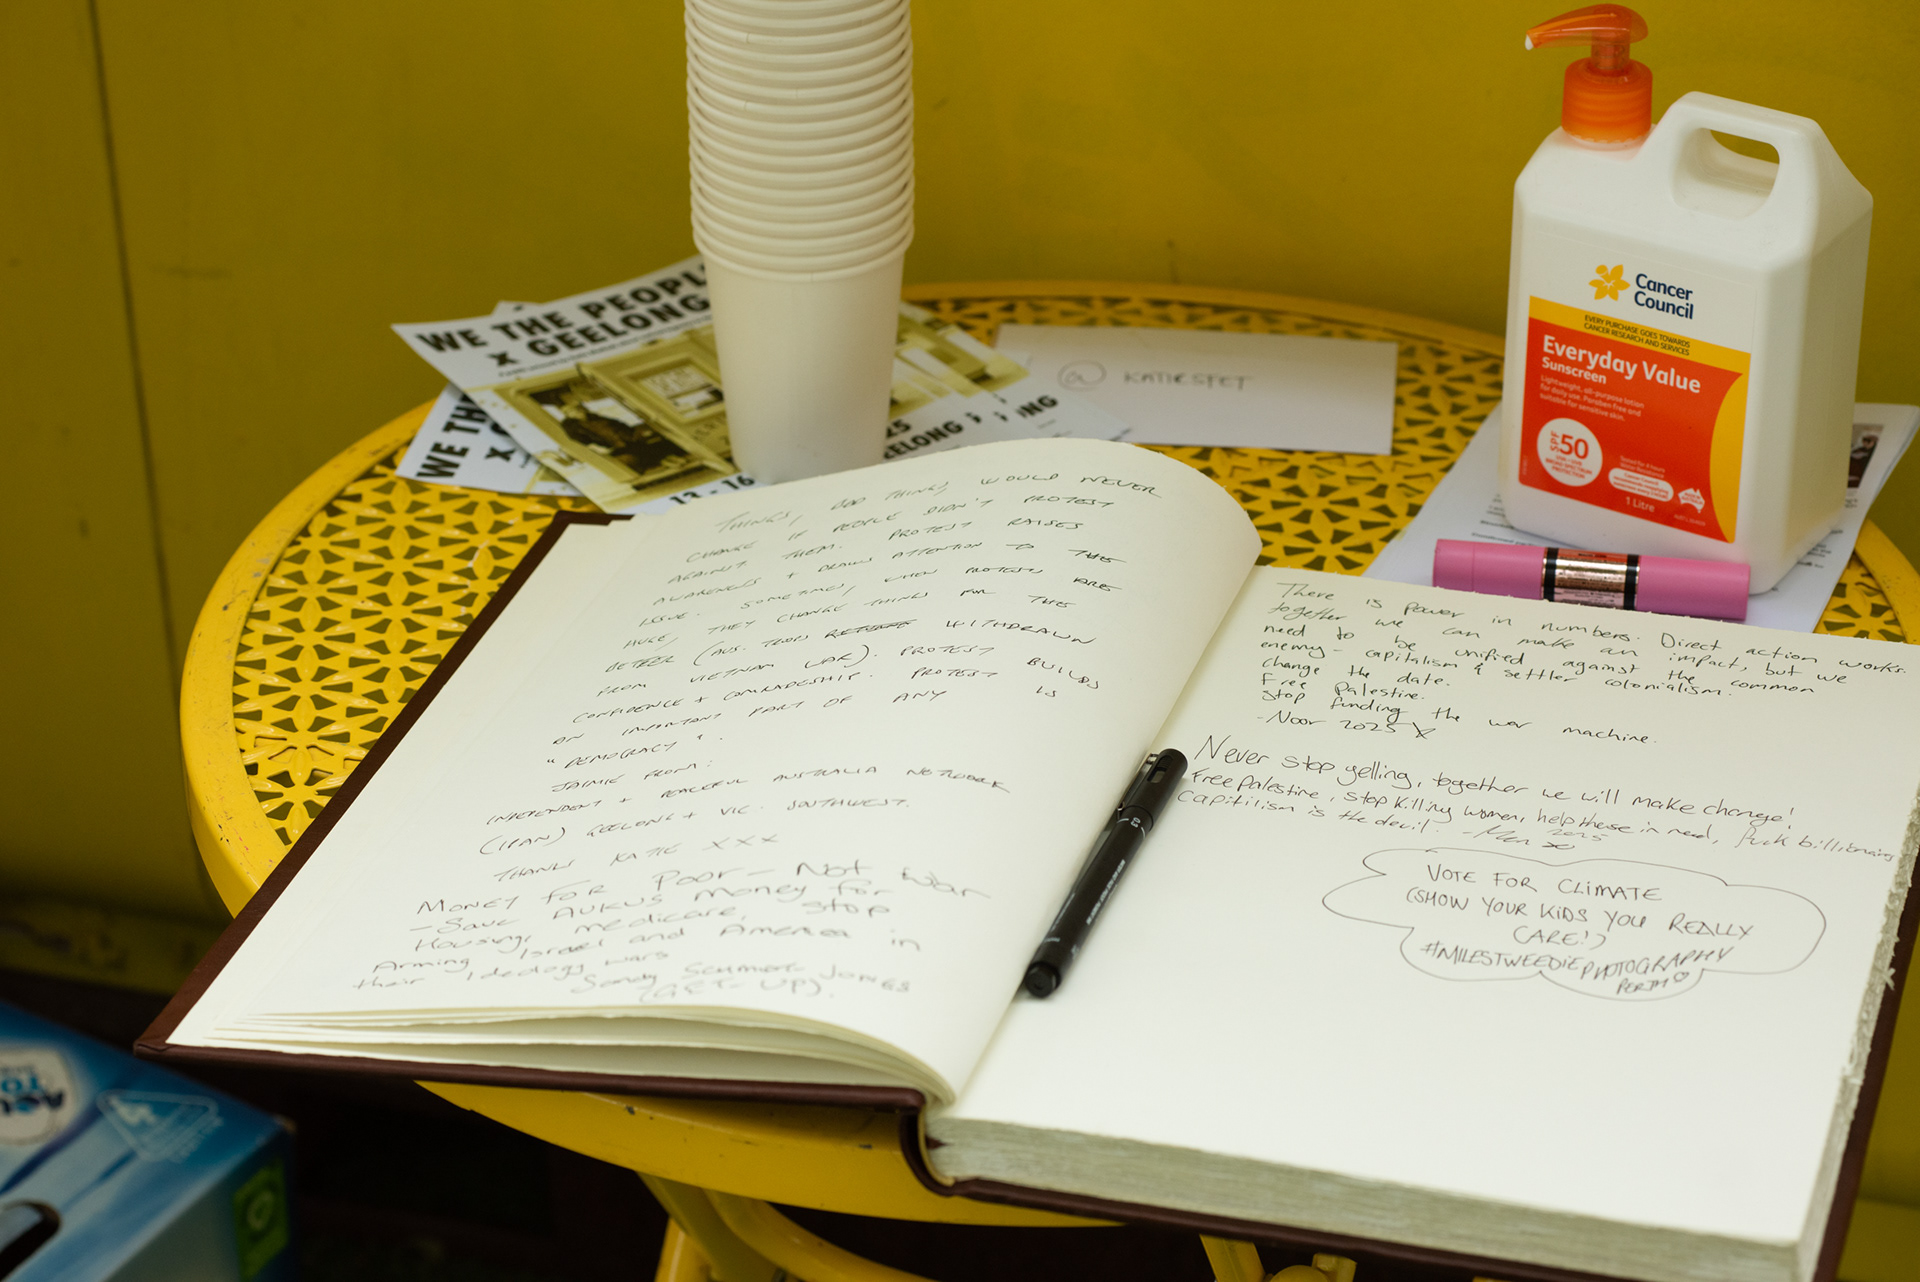 WE THE PEOPL
x GEELONG
WE TH
25
EELONG
NG
13 - 16
@ KATIESFET
Cancer
Council
EVERY PURCHASE GOES TOWARDS
CANCER RESEARCH AND SERVICES
Everyday Value
Sunscreen
Lightweight, all-purpose lotion
for daily use. Paraben free and
suitable for sensitive skin.
SPF 50
1 Litre
THINGS, ODD THINGS, WOULD NEVER
CHANGE IF PEOPLE DIDN'T PROTEST
AGAINST THEM. PROTEST RAISES
AWARENESS + DRAWS ATTENTION TO THE
ISSUE. SOMETIMES, WHEN PROTESTS ARE
HUGE, THEY CHANGE THINGS FOR THE
BETTER (AUS. TROOPS WITHDRAWN
FROM VIETNAM WAR). PROTEST BUILDS
CONFIDENCE + COMRADESHIP. PROTEST IS
AN IMPORTANT PART OF ANY
"DEMOCRACY".
JAIMIE FROM:
INDEPENDENT + PEACEFUL AUSTRALIA NETWORK
(IPAN) GEELONG + VIC. SOUTHWEST.
THANKS KATIE XXX
MONEY FOR POOR - NOT WAR
- Save AUKUS money for
Housing, medicare, stop
Arming Israel and America in
their Ideology wars
Sandy Schmidt-Jones
(GET-UP).
There is power in numbers. Direct action works.
together we can make an impact, but we
need to be unified against the common
enemy - capitalism & settler colonialism.
change the date.
Free Palestine.
Stop funding the war machine.
- Noor 2025 X
Never stop yelling, together we will make change!
Free palestine, stop killing women, help those in need, fuck billionairs
capitilism is the devil. 2025
VOTE FOR CLIMATE
(SHOW YOUR KIDS YOU REALLY
CARE!)
#MILESTWEEDIEPHOTOGRAPHY
PERTH